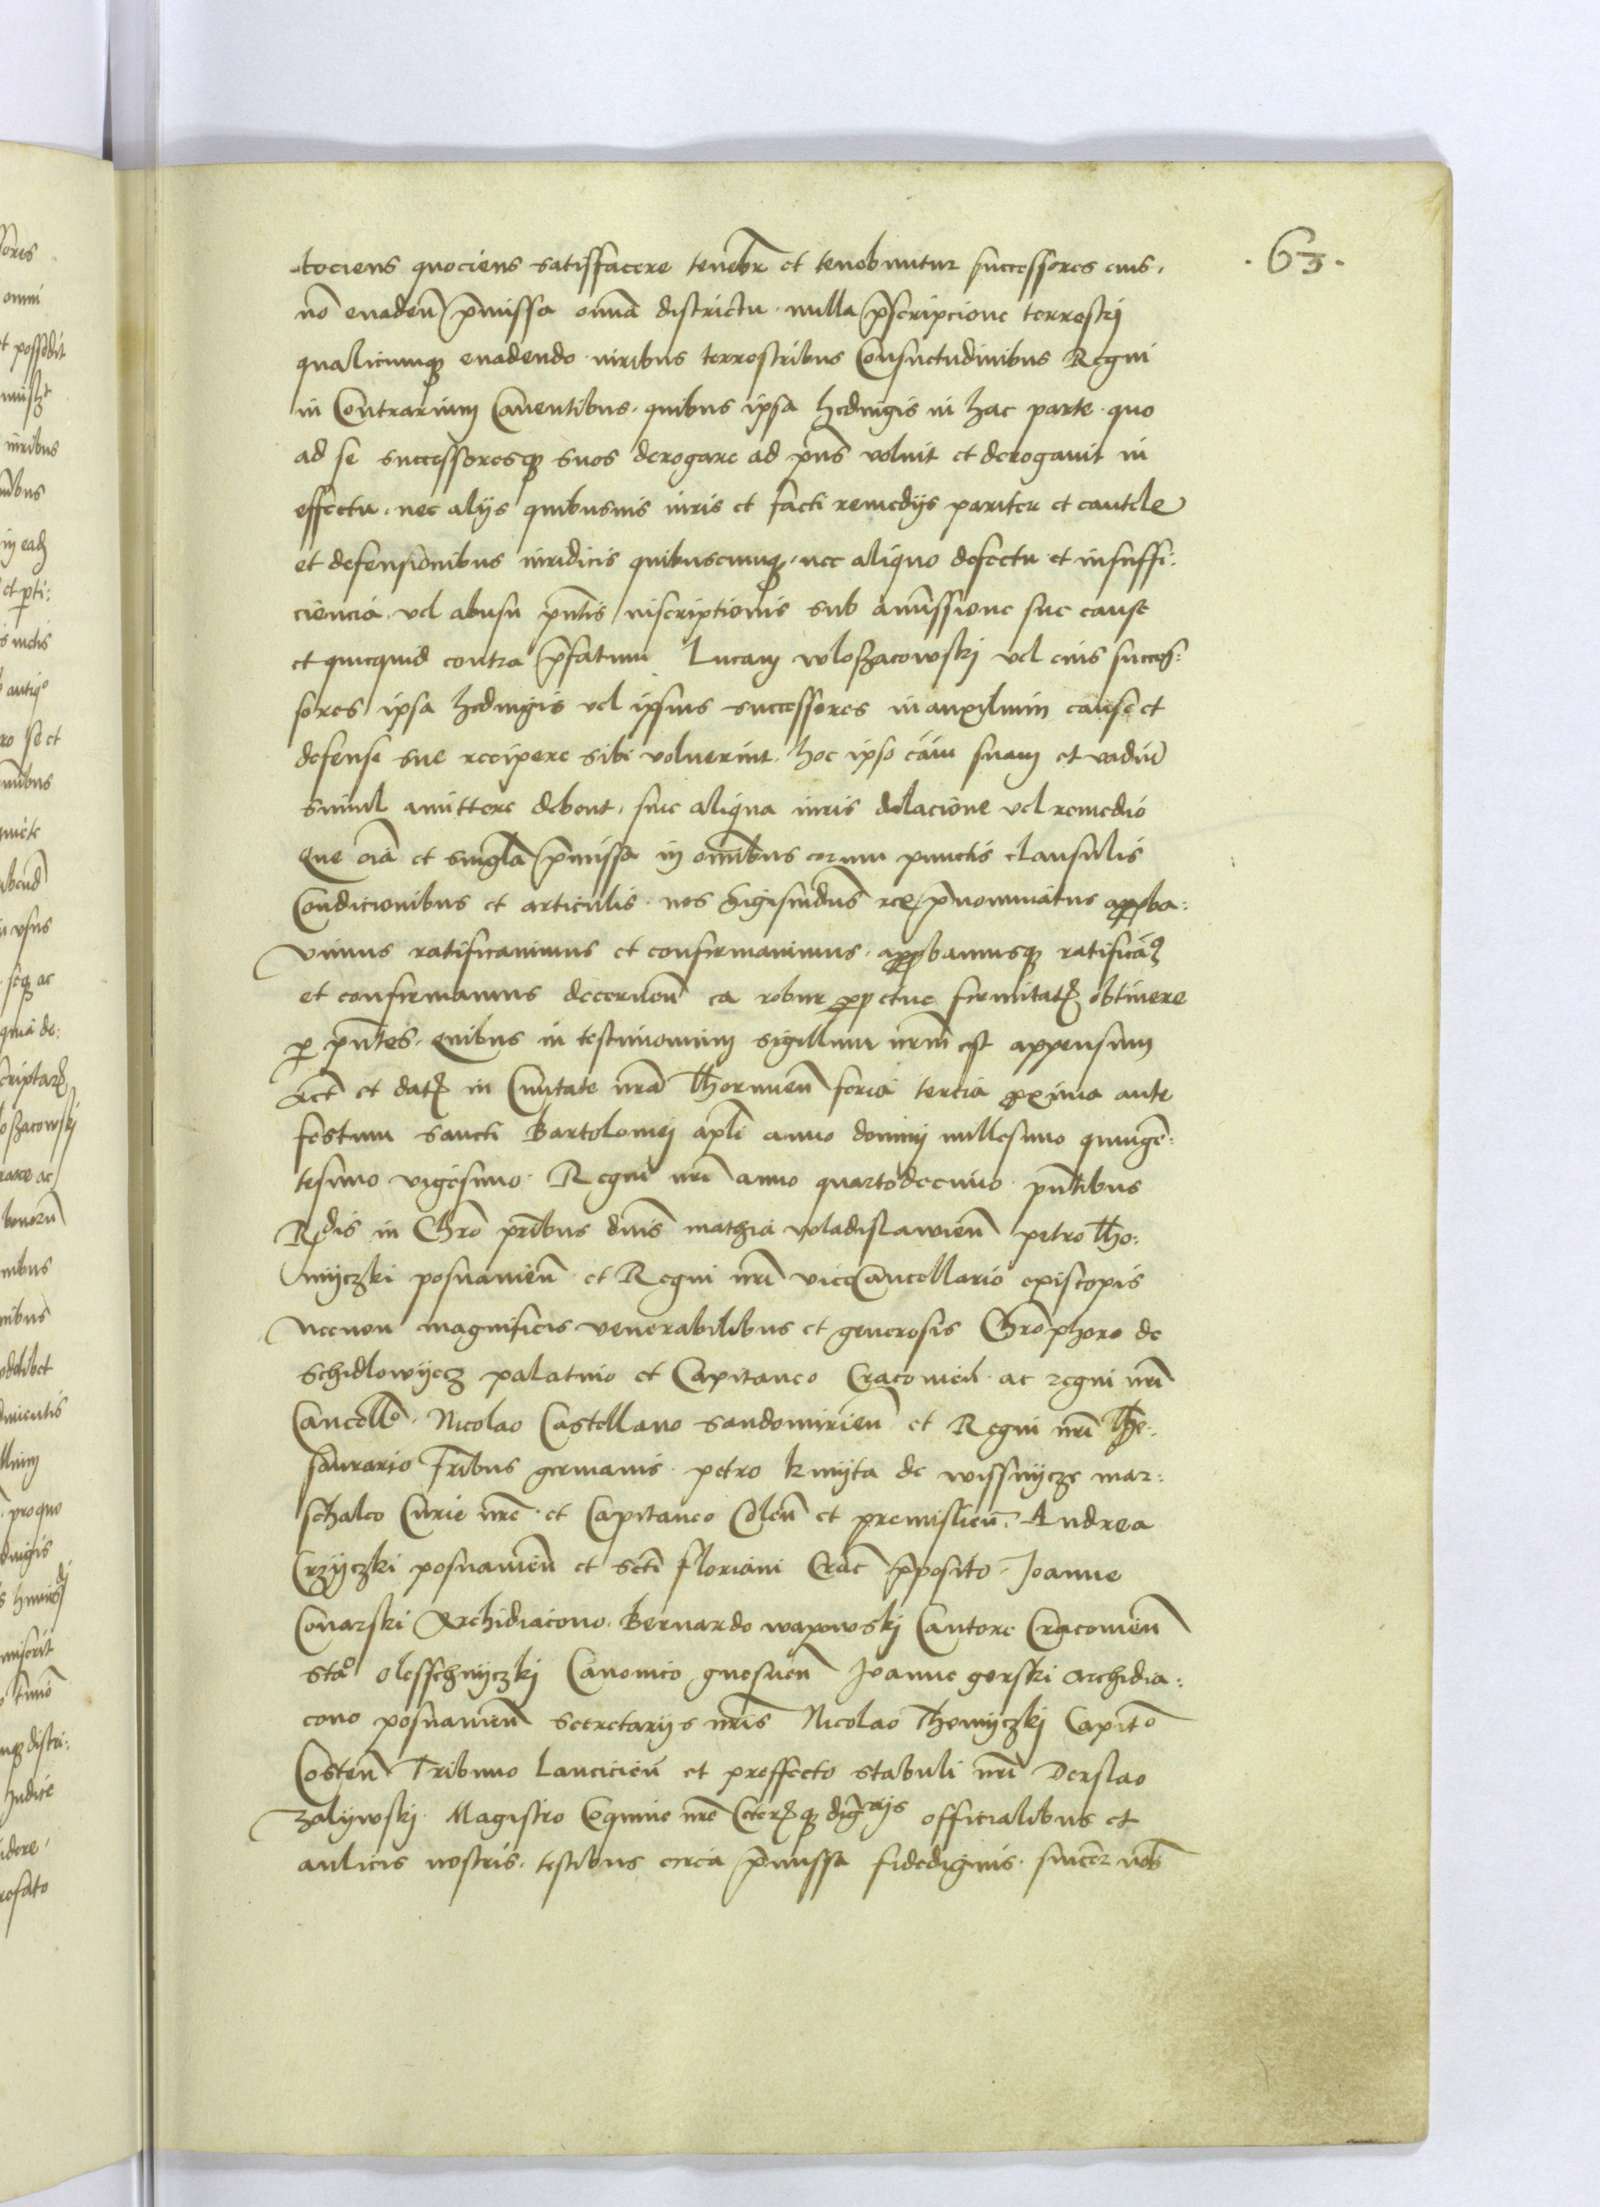 .63.
tociens quociens satisffacere tenebr̄ et tenebuntur successores eius,
nō euadeñ p̄missa omnia districtu. nulla p̄scripcione terrestrj
qualicumqꝫ euadendo iuribus terrestribus Consuetudinibus Regni
in Contrarium Cauentibus. quibus ipsa hedwigis in hac parte. quo
ad se successoresqꝫ suos derogare ad p̄ns voluit et derogauit in
effectu, nec alijs quibusuis iuris et facti remedijs pariter et cautele
et defensionibus iuridicis quibuscumqꝫ, nec aliquo defectu et insuffi:
ciencia. vel abusu p̄ntis inscriptionis sub amissione sue cause
et quicquid contra p̄fatum Lucam wloßacowskj vel eius succes:
sores ipsa hedwigis vel ipsius successores in auxilium cause et
defense sue recipere sibi voluerint. hoc ipso cām suam et vadiū
simul amittere debent, sine aliqua iuris dilacione vel remedio
Que oīa et singla p̄missa in omībus eorum punctis clausulis
Condicionibus et articulis. nos Sigismdus̄ rex p̄nominatus appꝛoba:
vimus ratificauimus et confirmauimus. appꝛobamusqꝫ ratificāꝰ
et confirmamus decerneñ ea robur ꝑpetue firmitatꝭ obtinere
ꝑ p̄ntes. Quibus in testimonium sigillum nr̄m est appensum
Actꝭ et datꝭ in Ciuitate nr̄a Thornueñ feria tercia ꝓxima ante
festum sancti Bartolomej apl̄i anno dominj millesimo quingē:
tesimo vigesimo. Regni nr̄i anno quartodecimo. p̄ntibus
Rdis in Chrō prībus dnīs mathia wladislawień petro Tho:
mÿczki posnanień et Regni nr̄i viceCancellario episcopis
Necnon magnificis venerabilibus et generosis Chrōphoro de
schidlowÿecz palatino et Capitaneo Cracouień. ac regni nr̄i
Cancellō. Nicolao Castellano sandomirień et Regni nr̄i The:
saurario fr̄ibus germanis. petro kmÿta de wissnÿcze mar:
schalco Curie nr̄e. et Capitaneo Coleñ et premislieñ. Andrea
Crzÿczki posnanień et sctī floriani Crac̄ p̄posito. Joanne
Conarski Archidiacono. Bernardo wapowskj Cantore Cracouień
stāo olesschnÿczkj Canonico gnesneñ Joanne gorski archidia:
cono posnanień secretarijs nr̄is Nicolao ThomÿczkJ Capitº
Costeñ Tribuno Lancicień et preffecto stabuli nr̄i Derslao
zalÿwskj. Magistro Coquine nr̄e Ceterꝭqꝫ dignrijs officialibus et
aulicis nostris. testibus circa p̄missa fidedignis. sincer̄ nob̄